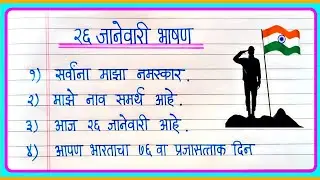 २६ जानेवारी भाषण
१) सर्वांना माझा नमस्कार.
२) माझे नाव समर्थ आहे.
३) आज २६ जानेवारी आहे.
४) आपण भारताचा ७६ वा प्रजासत्ताक दिन